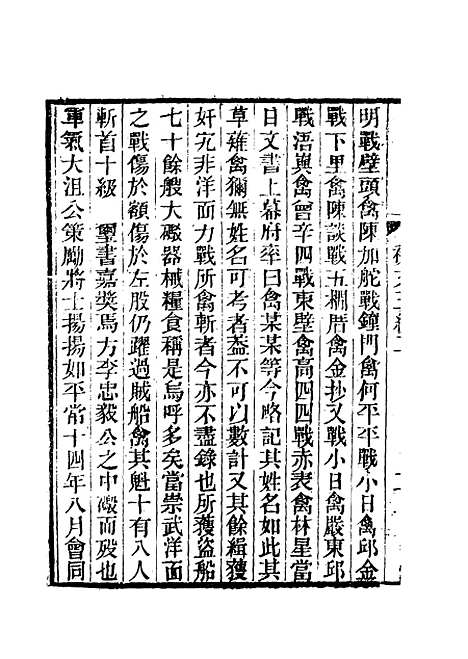 明戰壁頭禽陳加舵戰鐘門禽何平平戰小日禽邱金
戰下里禽陳談戰五欄厝禽金抄又戰小日禽嚴東邱
戰浯與禽曾辛四戰東壁禽高四四戰赤表禽林星當
日文書上幕府率曰禽某某等今略記其姓名如此其
草薙禽獮無姓名可考者葢不可以數計又其餘緝獲
奸宄非洋面力戰所禽斬者今亦不盡錄也所獲盜船
七十餘艘大礮器械糧食稱是烏呼多矣當崇武洋面
之戰傷於額傷於左股仍躍過賊船禽其魁十有八人
斬首十級 璽書嘉獎焉方李忠毅公之中礮而歿也
軍氣大沮公策勵將士揚揚如平常十四年八月會同